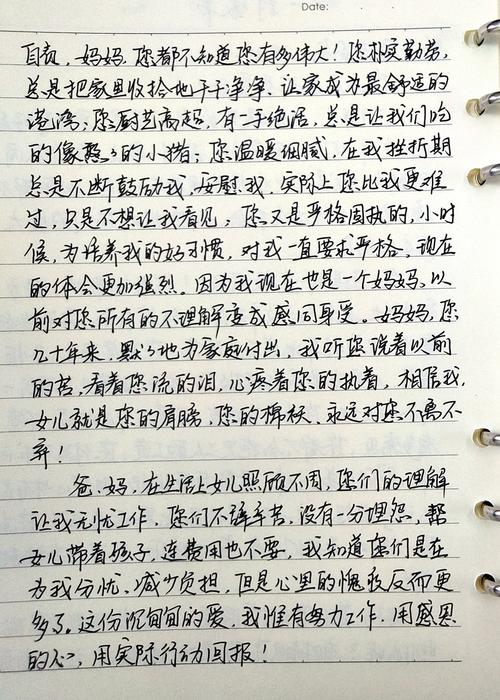 Date:
自责，妈妈，您都不知道您有多伟大！您朴实勤劳，
总是把家里收拾地干干净净、让家成为最舒适的
港湾；您厨艺高超，有一手绝活，总是让我们吃
的像憨々的小猪；您温暖细腻，在我挫折期
总是不断鼓励我，安慰我，实际上您比我更难
过，只是不想让我看见，您又是严格固执的，小时
候，为培养我的好习惯，对我一直要求严格，现在
的体会更加强烈。因为我现在也是一个妈妈，以
前对您所有的不理解变成感同身受。妈妈，您
几十年来，默々地为家庭付出，我听您说着以前
的苦，看着您流的泪，心疼着您的执着，相信我，
女儿就是您的肩膀，您的棉袄、永远对您不离不
弃！
爸、妈，在生活上女儿照顾不周，您们的理解
让我无忧工作，您们不辞辛苦，没有一分埋怨，帮
女儿带着孩子，连费用也不要，我知道您们是在
为我分忧、减少负担，但是心里的愧疚反而更
多了。这份沉甸甸的爱，我惟有努力工作，用感恩
的心，用实际行动回报！